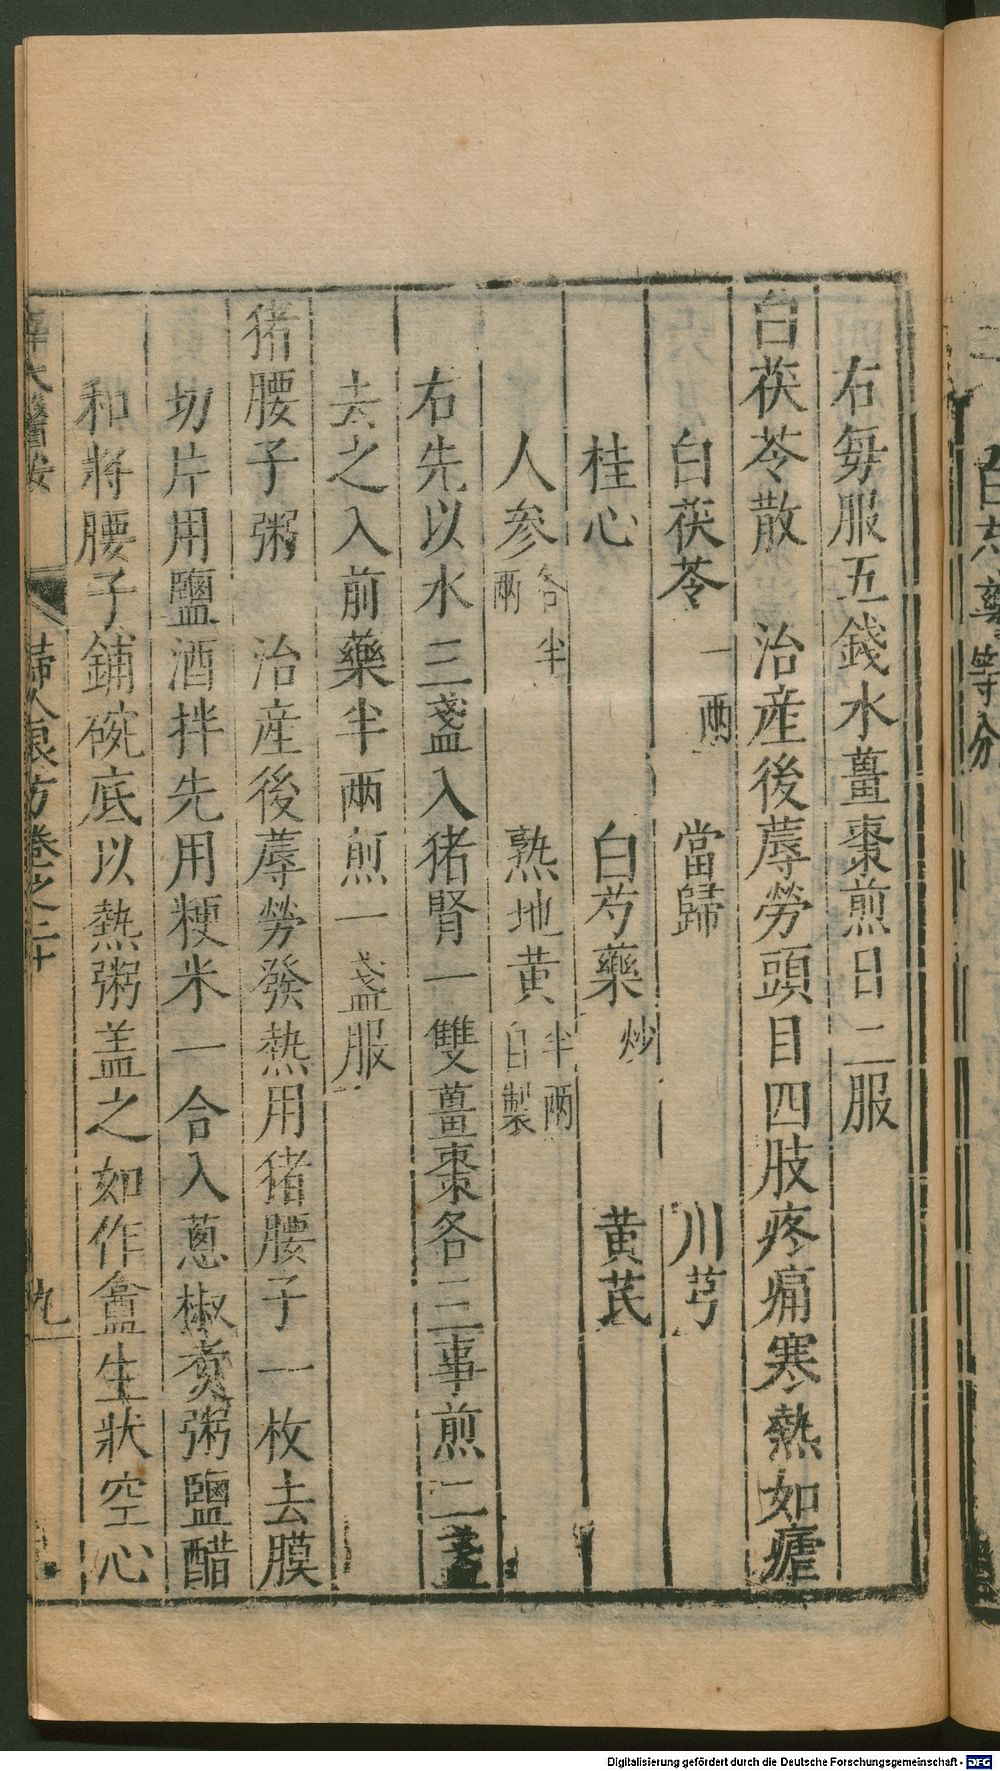 右每服五錢水薑棗煎日二服
白茯苓散　治産後蓐勞頭目四肢疼痛寒熱如瘧
白茯苓一兩　當歸　川芎
桂心　白芍藥炒　黄芪
人参各半兩　熟地黄半兩自製
右先以水三盞入猪腎一雙薑棗各二事煎二盞
去之入前藥半兩煎一盞服
猪腰子粥　治産後蓐勞發熱用猪腰子一枚去膜
切片用鹽酒拌先用粳米一合入蔥椒煑粥鹽醋
和將腰子鋪碗底以熱粥盖之如作盦生狀空心
婦人良方卷之二十
九
白芷藥等分
Digitalisierung gefördert durch die Deutsche Forschungsgemeinschaft - DFG